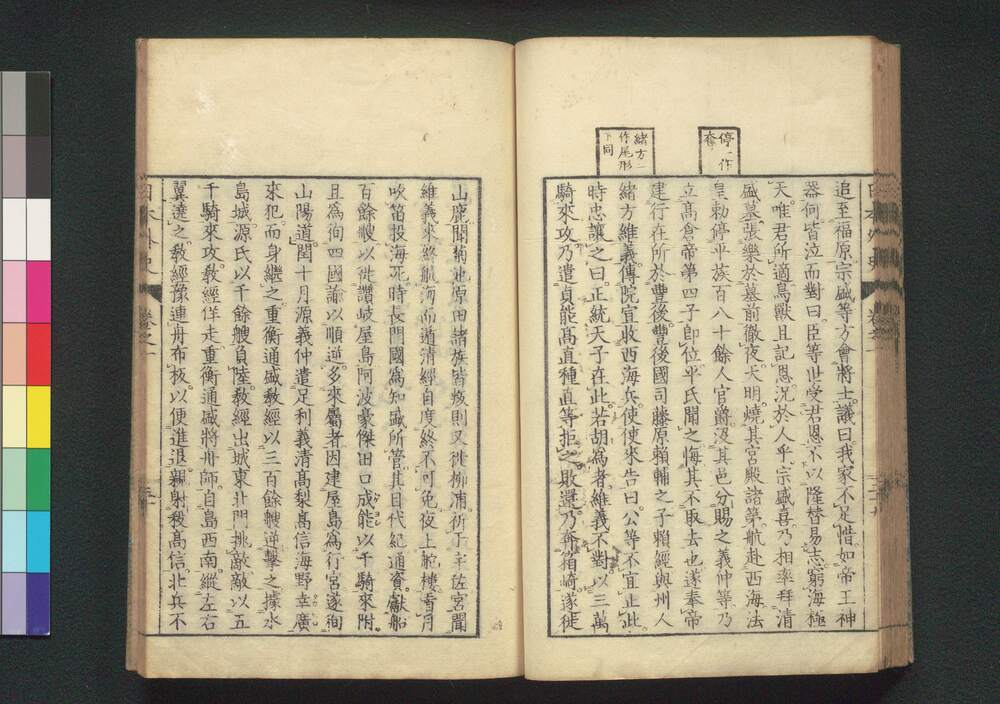 停一作
奪
緒方一
作尾形
下同
追至福原宗盛等方會將士議曰我家不足惜如帝王神
器何皆泣而對曰臣等世受君恩不以隆替易志窮海極
天唯君所適鳥獸且記恩況於人乎宗盛喜乃相率拜清
盛墓張樂於墓前徹夜天明燒其宮殿諸第航赴西海法
皇勅停平族百八十餘人官爵沒其邑分賜之義仲等乃
立高倉帝第四子卽位平氏聞之悔其不取去也遂奉帝
建行在所於豐後豐後國司藤原賴輔之子賴經與州人
緒方維義傳院宣收西海兵使使來告曰公等不宜止此
時忠讓之曰正統天子在此若胡爲者維義不對以三萬
騎來攻乃遣貞能高直種直等拒之敗還乃奔箱崎遂徙
山鹿聞
原田諸族皆叛則又徙柳浦祈于宇佐宮聞
維義來終航海而遁清經自度終不可免夜上舵樓看月
吹笛投海死時長門國爲知盛所管其目代紀通資獻船
百餘艘以徙讚岐屋島阿波豪傑田口成能以千騎來附
且爲徇四國諭以順逆多來屬者因建屋島爲行宮遂徇
山陽道閏十月源義仲遣足利義清高梨高信海野幸廣
來犯而身繼之重衡通盛敎經以三百餘艘逆擊之據水
島城源氏以千餘艘負陸敎經出城東北門挑敵敵以五
千騎來攻敎經佯走重衡通盛將舟師自島西南縱左右
翼遶之敎經豫連舟布板以便進退親射殺高信北兵不
日本外史
卷之一